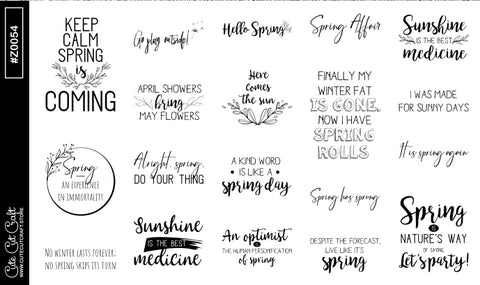 #Z0054
Cute Cut Craft
WWW.CUTECUTCRAFT.STORE
KEEP
CALM
SPRING
is
COMING
Spring
AN EXPERIENCE
IN IMMORTALITY
NO WINTER LASTS FOREVER;
NO SPRING SKIPS ITS TURN
Go play outside!
APRIL SHOWERS
bring
MAY FLOWERS
Alright, spring,
DO YOUR THING
Sunshine
IS THE BEST
medicine
Hello Spring
Here
comes
the sun
A KIND WORD
IS LIKE A
spring day
An optimist
IS
THE HUMAN PERSONIFICATION
of spring
Spring Affair
FINALLY MY
WINTER FAT
IS GONE,
NOW I HAVE
SPRING
ROLLS
Spring has sprung
DESPITE THE FORECAST,
LIVE LIKE IT'S
spring
Sunshine
IS THE BEST
medicine
I WAS MADE
FOR SUNNY DAYS
It is spring again
Spring
IS
NATURE'S WAY
OF SAYING,
Let's party!